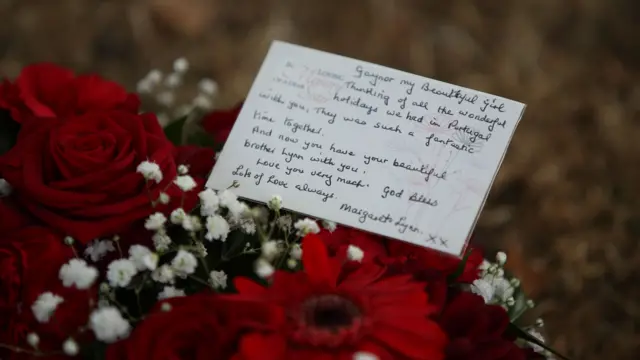 Gaynor my Beautiful Girl
Thinking of all the wonderful
holidays we had in Portugal
with you, They was such a fantastic
time together.
And now you have your beautiful
brother Lynn with you.
Love you very much. God Bless
Lots of Love always. Margaret & Lynn.
xx